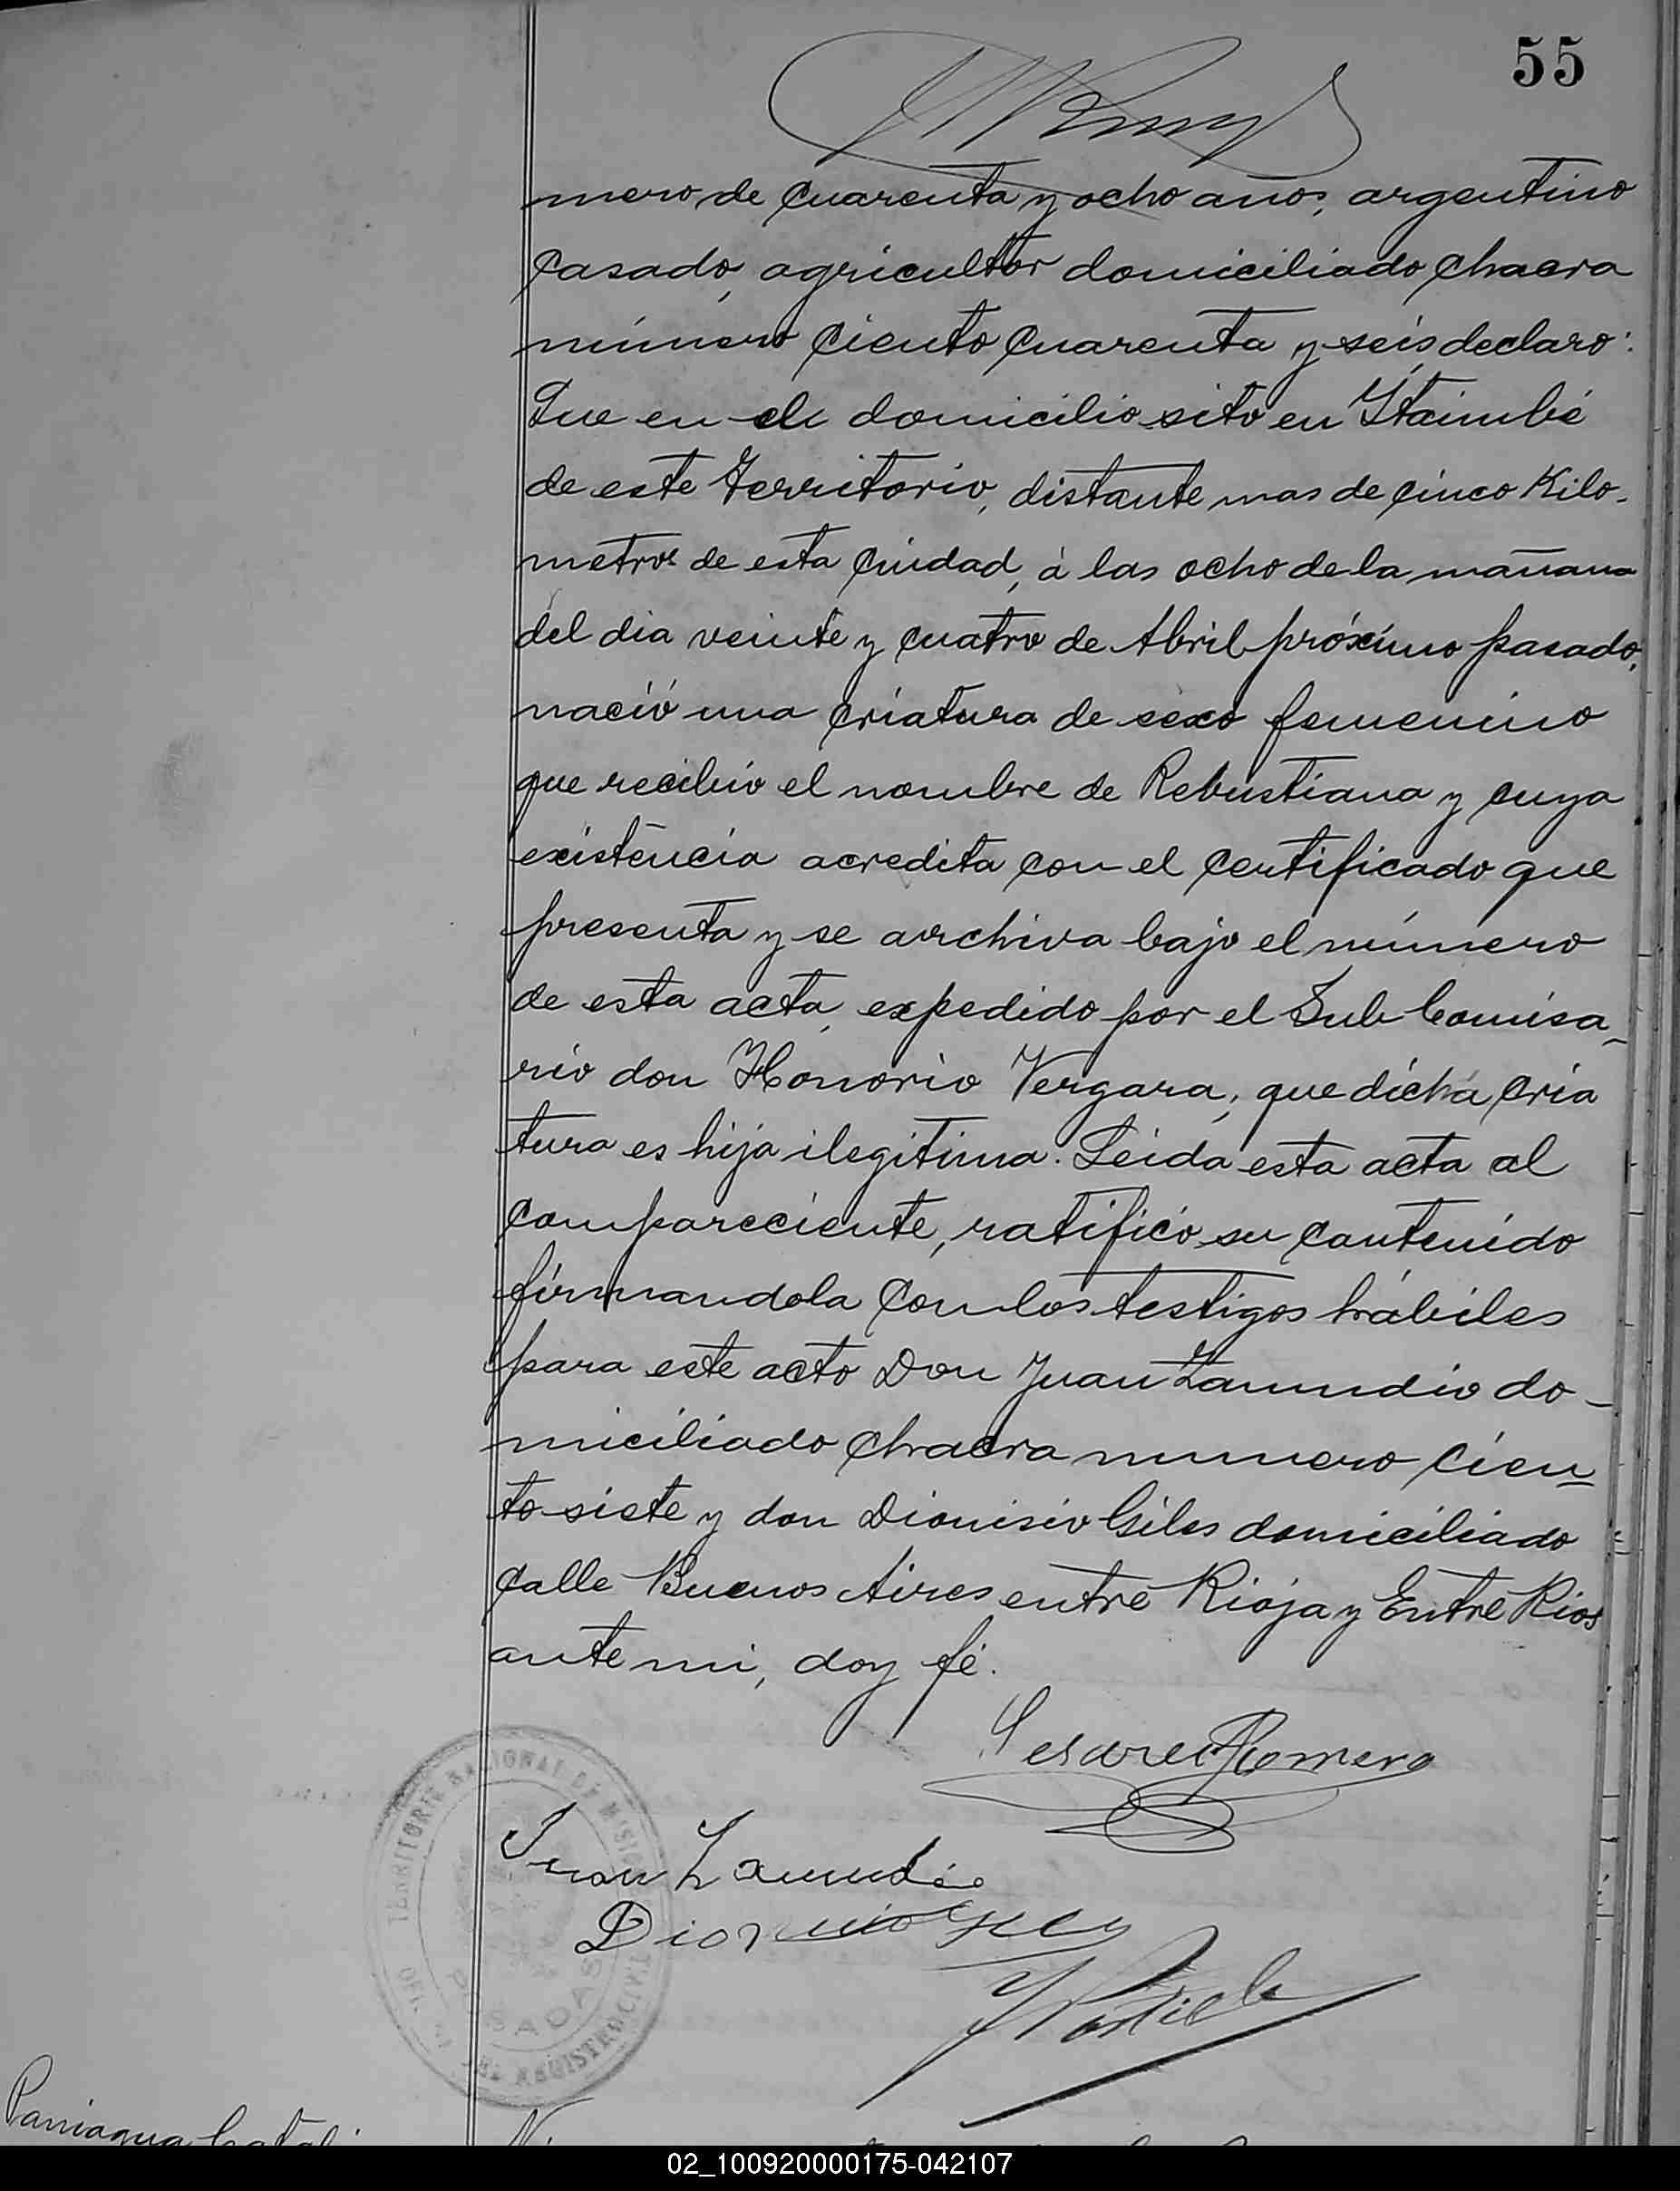 55
mero, de cuarenta y ocho años, argentino
casado, agricultor domiciliado chacra
número ciento cuarenta y seis, declaro:
Que en el domicilio sito en Itaimbé
de este Territorio, distante mas de cinco Kilo-
metros de esta ciudad, á las ocho de la mañana
del dia veinte y cuatro de Abril próximo pasado,
nació una criatura de sexo femenino
que recibió el nombre de Rebustiana y cuya
existencia acredita con el certificado que
presenta y se archiva bajo el número
de esta acta, expedido por el Sub Comisa-
rio don Honorio Vergara; que dicha cria
tura es hija ilegitima. Leida esta acta al
compareciente, ratificó su contenido
firmandola con los testigos hábiles
para este acto Don Juan Zamudio do-
miciliado chacra numero cien-
to siete y don Dionisio Giles domiciliado
calle Buenos Aires entre Rioja y Entre Rios
ante mi, doy fé.
Romero
Juan Zamudio
TERRITORIO NACIONAL DE MISIONES
POSADAS
DEL REGISTRO CIVIL
Paniagua
02_100920000175-042107